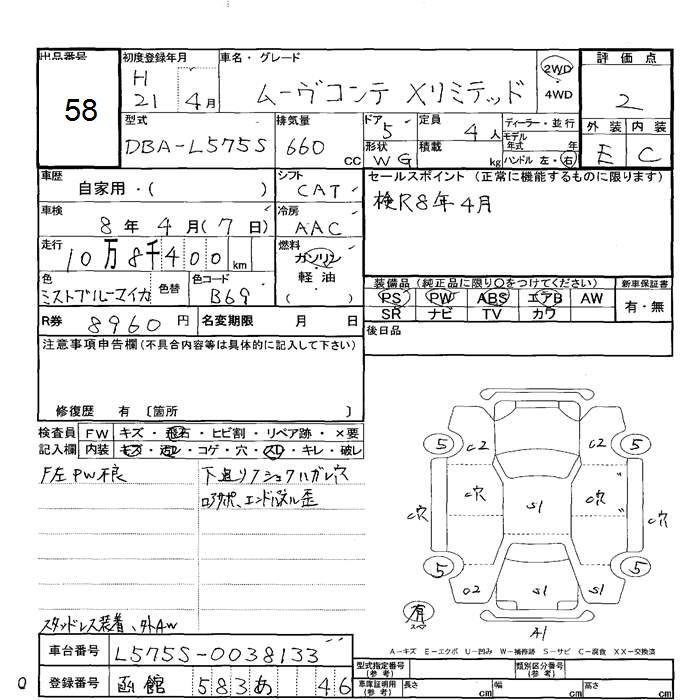 出品番号
58
初度登録年月
H
21 4月
車名・グレード
ムーヴコンテ Xリミテッド
2WD
・
4WD
評価点
2
型式
DBA-L575S
排気量
660 cc
ドア
5
形状
WG
定員
4人
積載
kg
ディーラー・並行
モデル
年式 年
ハンドル 左・右
外装 内装
E C
車歴
自家用・( )
シフト
CAT
セールスポイント (正常に機能するものに限ります)
検R8年4月
車検
8年4月(7日)
冷房
AAC
走行
10万8千400 km
燃料
ガソリン
・
軽油
( )
色
ミストブルーマイカ
色替
色コード
B69
装備品(純正品に限り○をつけてください)
PS PW ABS エアB AW
SR ナビ TV カワ
新車保証書
有・無
R券 8960円
名変期限 月 日
後日品
注意事項申告欄(不具合内容等は具体的に記入して下さい)
修復歴 有 〔箇所 〕
検査員
記入欄
FW キズ・飛石・ヒビ割・リペア跡・×要
内装 キズ・汚レ・コゲ・穴・スレ・キレ・破レ
F左PW不良
スタッドレス装着、外AW
5 C2 C2 5
C穴 C穴 S1 C穴 C穴
5 C2 S1 S1 5
有
スペ
A1
A-キズ E-エクボ U-凹み W-補修跡 S-サビ C-腐食 XX-交換済
車台番号 L575S-0038133
登録番号 函館 583 あ 46
型式指定番号
(参考)
類別区分番号
(参考)
車庫証明用
(参考)
長さ cm 幅 cm 高さ cm